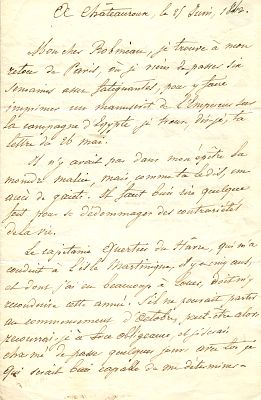 Châteauroux, le 25 Juin, 1842.
Mon cher Robineau, je trouve à mon
retour de Paris, où je viens de passer six
semaines assez fatigantes, pour y faire
imprimer un manuscrit de l'Empereur sur
la campagne d'Egypte, je trouve, dis-je, ta
lettre du 26 mai.
Il n'y avait pas dans mon épître la
moindre malice mais comme tu le dis, un
accès de gaité. Il faut bien rire quelque
fois pour se dédommager des contrariétés
de la vie.
Le capitaine de Hâvre, qui m'a
conduit à l'isle Martinique, il y a cinq ans,
et dont j'ai eu beaucoup à louer, doit m'y
reconduire cette année. S'il ne pouvait partir
au commencement d'Octobre, peut-être alors
je à ton obligeance, et je serais
charmé de passer quelques jours avec toi je
Qui serait bien capable de me déterminer